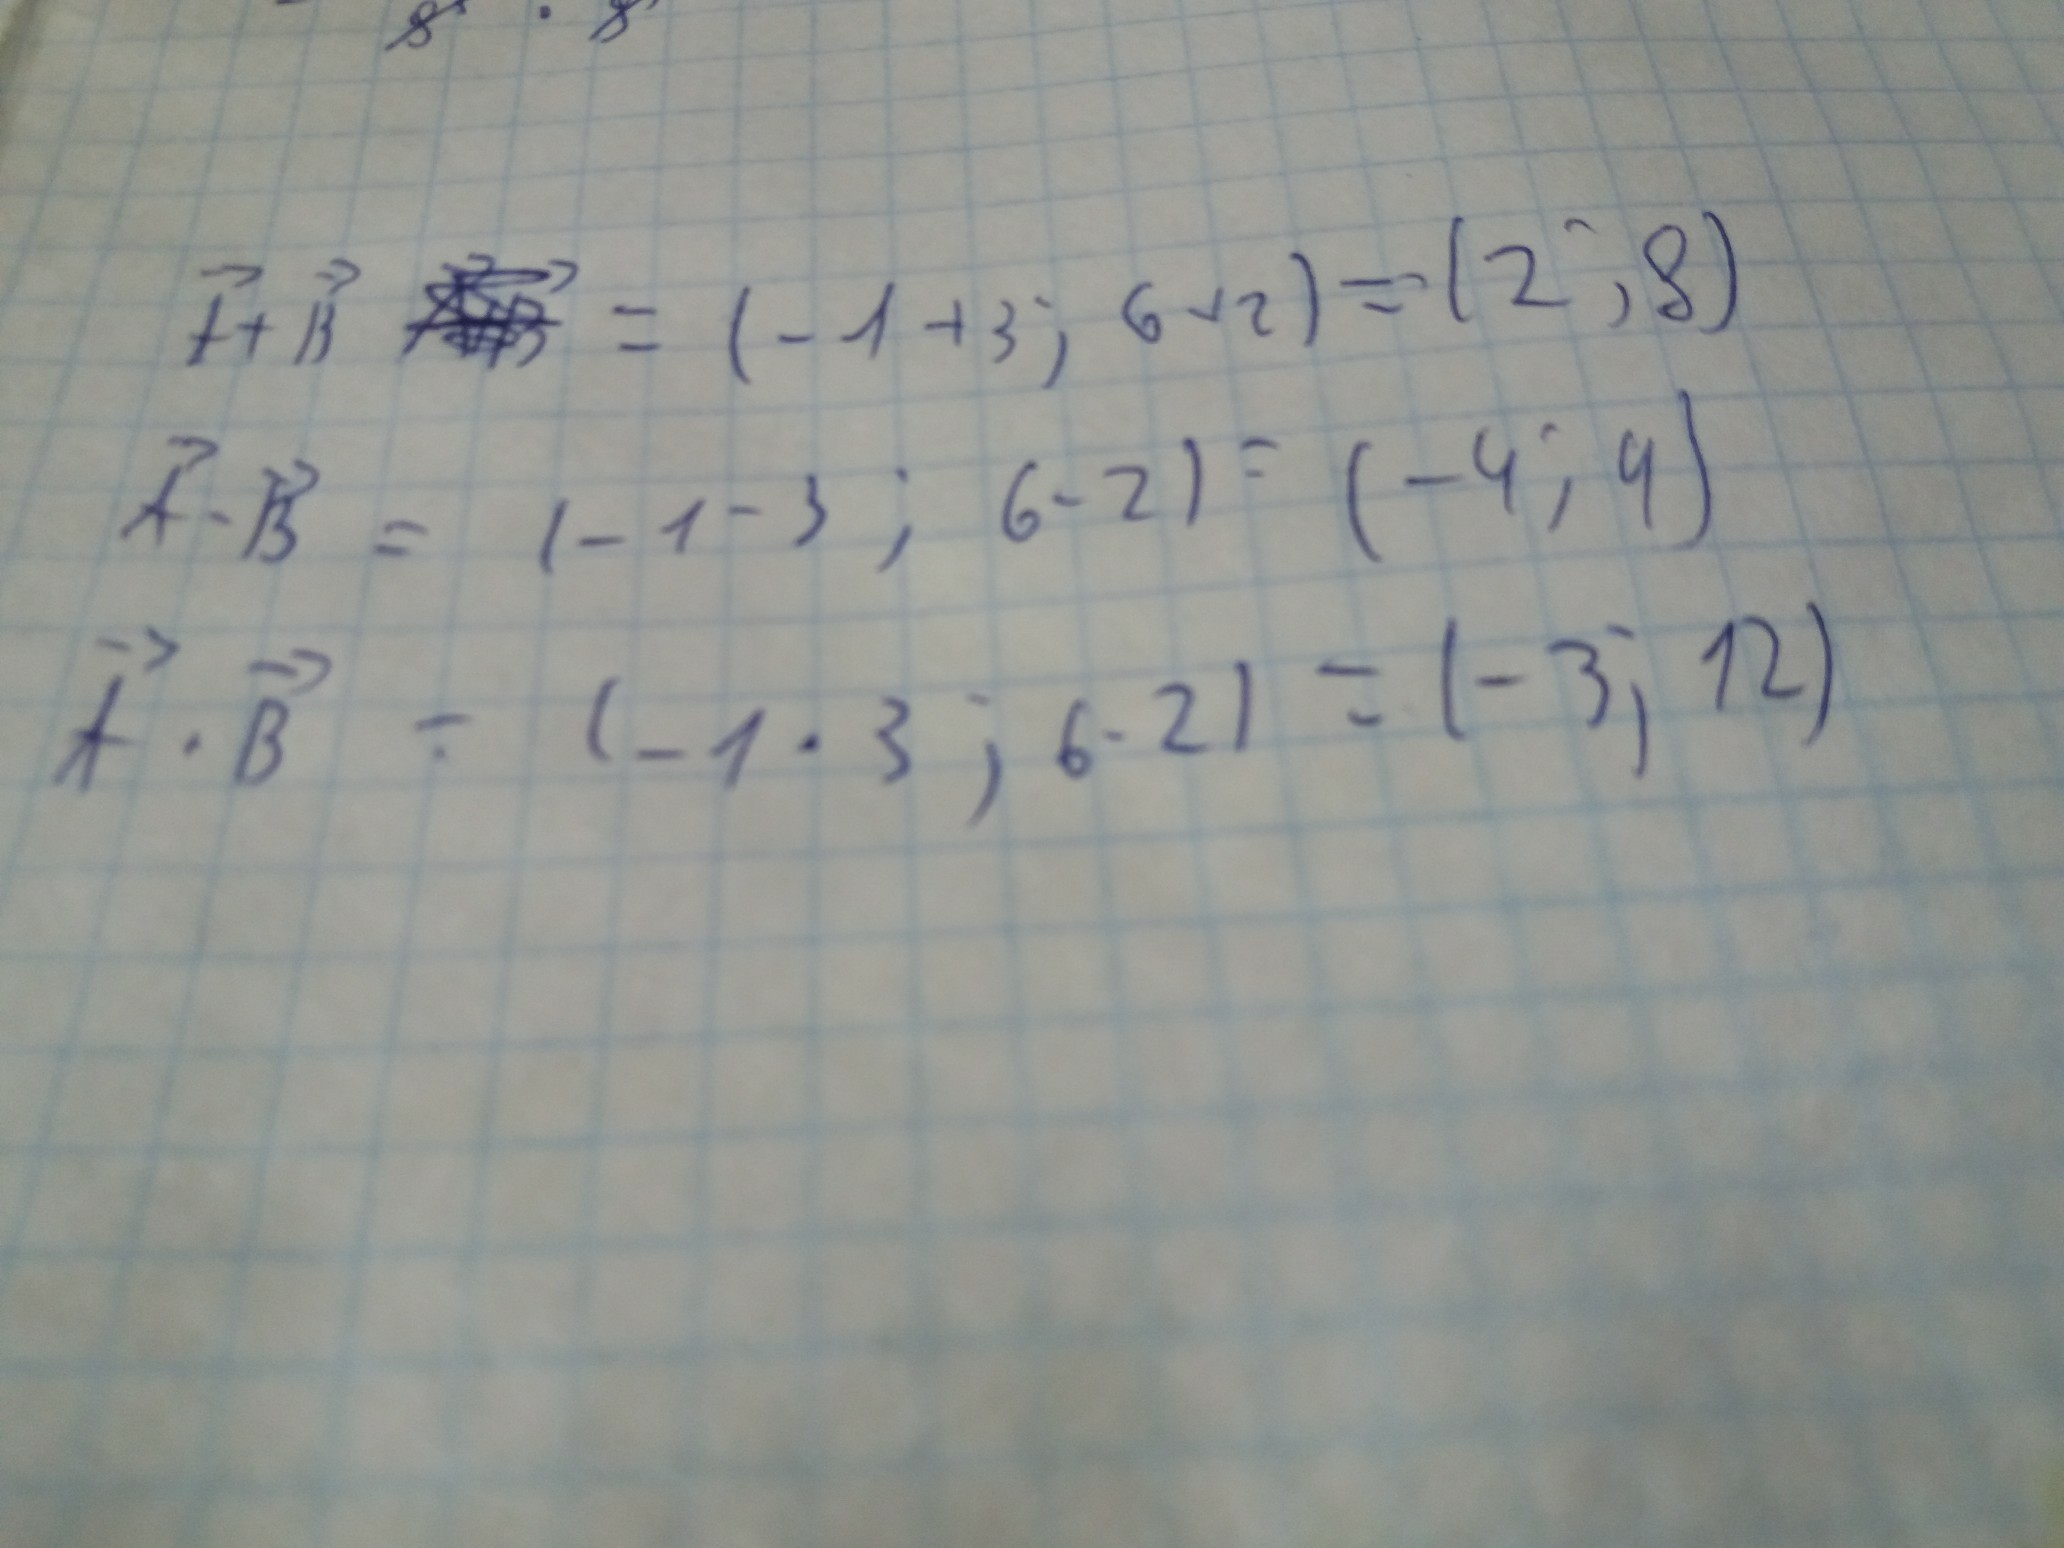 8 . 8
A⃗+B⃗ = (-1+3; 6+2)=(2; 8)
A⃗-B⃗ = (-1-3; 6-2)=(-4; 4)
A⃗·B⃗ = (-1·3; 6·2)=(-3; 12)